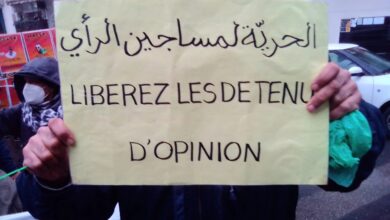 الحريّة لمساجين الرأي
LIBEREZ LES DETENU
D'OPINION